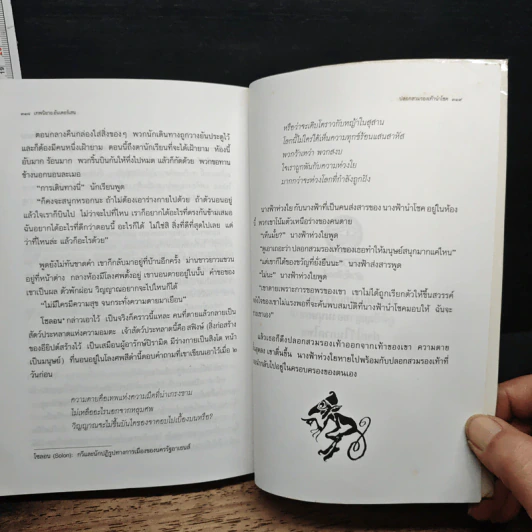 ๑๑๘ เทพนิยายแอนเดอร์เสน
ตอนกลางคืนกล่องใส่สิ่งของๆ พวกนักเดินทางถูกวางยันประตูไว้
และก็ต้องมีคนหนึ่งเฝ้ายาม ตอนนี้ถึงตานักเรียนที่จะได้เฝ้ายาม ห้องนี้
อับมาก ร้อนมาก พวกริ้นบินกันให้ทั่งไปหมด แล้วก็กัดด้วย พวกขอทาน
ข้างนอกนอนละเมอ
"การเดินทางนี่" นักเรียนพูด
"ก็คงจะสนุกหรอกนะ ถ้าไม่ต้องเอาร่างกายไปด้วย ถ้าตัวนอนอยู่
แล้วใจเราก็บินไป ไม่ว่าจะไปที่ไหน เราก็อยากได้อะไรที่ตรงกันข้ามเสมอ
ฉันอยากได้อะไรที่ดีกว่าตอนนี้ อะไรก็ได้ ไม่ใช่สิ สิ่งที่ดีที่สุดไปเลย แต่
ว่าที่ไหนล่ะ แล้วก็อะไรด้วย"
พูดยังไม่ทันขาดคำ เขาก็กลับมาอยู่ที่บ้านอีกครั้ง ม่านขาวยาวแขวน
อยู่ที่หน้าต่าง กลางห้องมีโลงศพตั้งอยู่ เขานอนตายอยู่ในนั้น คำขอของ
เขาเป็นผล ตัวพักผ่อน วิญญาณอยากจะไปไหนก็ได้
"ไม่มีใครมีความสุข จนกระทั่งความตายมาเยือน"
โซลอน* กล่าวเอาไว้ เป็นจริงก็คราวนี้แหละ คนที่ตายแล้วกลายเป็น
สัตว์ประหลาดแห่งความอมตะ เจ้าสัตว์ประหลาดนี้คือสฟิงซ์ (สิ่งก่อสร้าง
ของอียิปต์สร้างไว้ เป็นเสมือนผู้อารักษ์ปิรามิด มีร่างกายเป็นสิงโต หน้า
เป็นมนุษย์) ที่นอนอยู่ในโลงศพสีดำนี้ตอบคำถามที่เขาเขียนเอาไว้เมื่อ ๒
วันก่อน
ความตายคือเทพแห่งความมืดที่น่าเกรงขาม
ไม่เหลืออะไรนอกจากหลุมศพ
วิญญาณจะไม่ขึ้นบันไดของจาคอบไปเบื้องบนหรือ?
โซลอน (Solon): กวีและนักปฏิรูปทางการเมืองของนครรัฐอาเธนส์
ปลอกสวมรองเท้านำโชค ๑๑๙
หรือว่าจะเติบโตราวกับหญ้าในสุสาน
โลกนี้ไม่ใคร่ได้เห็นความทุกข์ร้อนแสนสาหัส
พวกร้างเศร้า พวกสงบ
ใจเราถูกดันกับความห่วงใย
มากกว่าจะห่วงโลกที่กำลังถูกฝัง
นางฟ้าห่วงใย กับนางฟ้าที่เป็นคนส่งสารของ นางฟ้านำโชค อยู่ในห้อง
นี้ พวกเขาโน้มตัวเหนือร่างของคนตาย
"เห็นมั้ย?" นางฟ้าห่วงใยพูด
"ดูเอาเถอะว่า ปลอกสวมรองเท้าของเธอทำให้มนุษย์สนุกมากแค่ไหน"
"แต่เขาก็ได้ของขวัญที่ยั่งยืนนะ" นางฟ้าส่งสารพูด
"ไม่นะ" นางฟ้าห่วงใยพูด
"เขาตายเพราะการขอพรของเขา เขาไม่ได้ถูกเรียกตัวให้ขึ้นสวรรค์
แล้วเธอก็ดึงปลอกสวมรองเท้าออกจากเท้าของเขา ความตาย
สุดลง เขาตื่นขึ้น นางฟ้าห่วงใยหายไปพร้อมกับปลอกสวมรองเท้าที่
กลับไปอยู่ในครอบครองของตนเอง